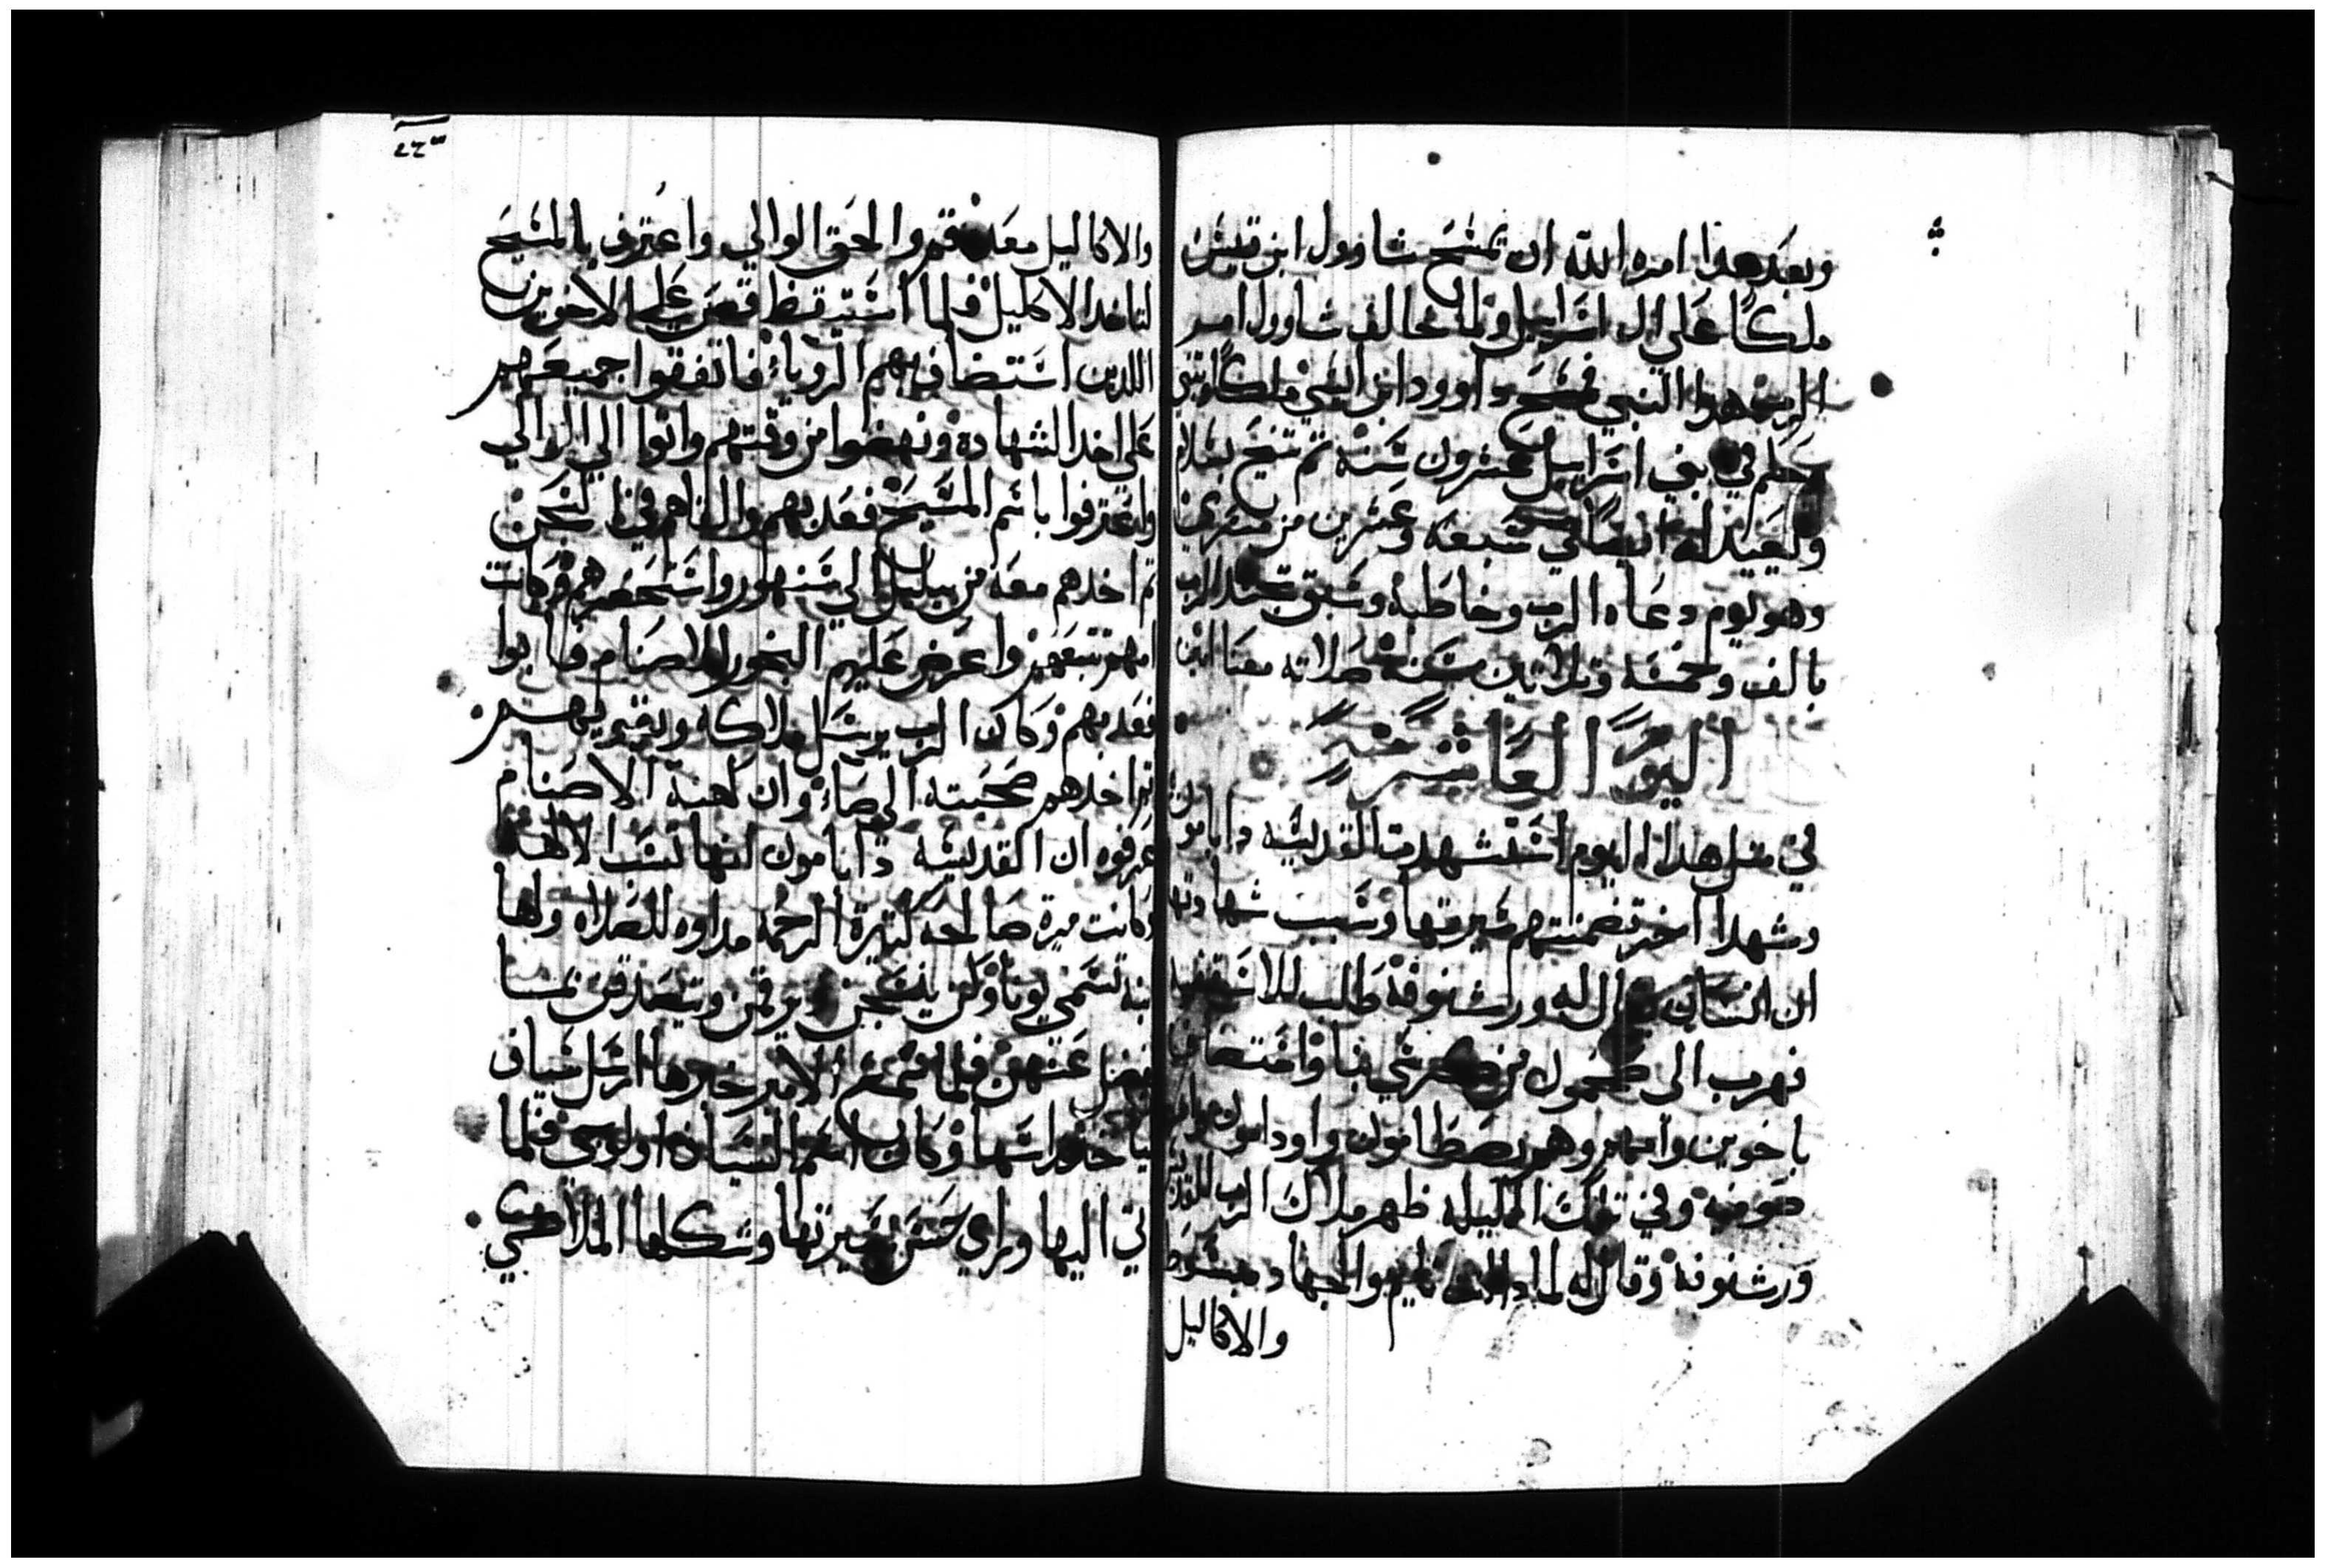 وبعد هذا امره الله ان يمسح شاوول ابن قيس
ملكًا علي ال اسراييل ولما خالف شاوول امر
الرب هذا النبي فمسح داوود ابن ايسي ملكا
حكم في بني اسراييل عشرون سنه ثم تنيح بسلام
وتعيد له ايضا في سبعه وعشرين من
وهو يوم دعاه الرب وخاطبه وسبق تجسد الرب
بالف وخمسه وتلاتين سنه صلاته معنا امين
اليوم العاشر
في متل هدا اليوم استشهدت القديسه دابامون
وشهدا اخر تضمنتهم سيرتها وسبب شهادتها
ان انسان يقال له ورشنوفه طلب للاسقفيه
فهرب الى طحمول من واستضاف
باخوين وامهم وهم بصطامون وداوود
صوفيه وفي تلك الليله ظهر ملاك الرب للقديس
ورشنوفه وقال له لمادا انت نايم والجهاد مبسوط
والاكاليل
٢٢٣
والاكاليل معده قم والحق الوالي واعترف بالمسيح
لتاخد الاكليل فلما استيقظ قص علي الاخوين
اللدين استضاف بهم الروياء فاتفقوا جميعهم
على اخد الشهاده ونهضوا من وقتهم واتوا الي الوالي
واعترفوا باسم المسيح فعدبهم والقاهم في السجن
تم اخدهم معه من ببليل الي سنهور واستحضرهم وكانت
امهم تتبعهم واعرض عليهم البخور للاصنام فابوا
فعدبهم وكان الرب يرسل ملاكه ويقيمهم
تم اخدهم صحبته الي صاء وان كهنة الاصنام
عرفوه ان القديسه دابامون انها تسب الالهه
وكانت ميرة صالحه كتيرة الرحمه مداوه للصلاه ولها
ابنه تسمي يونا وكن ينسجن ويرقمن ويتصدقن بمهما
يفضل عنهن فلما سمع الامير خبرها ارسل سياف
لياخد راسها وكان اسم السياف اولوجي فلما
اتي اليها وراي حسن سيرتها وشكلها الملايكي